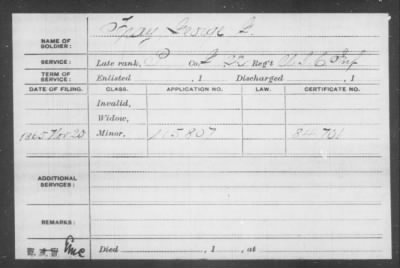 NAME OF SOLDIER: George
SERVICE: Late rank, P Co. 22 Reg't U.S.C. Inf
TERM OF SERVICE: Enlisted , 1 Discharged , 1
DATE OF FILING. CLASS. APPLICATION NO. LAW. CERTIFICATE NO.
Invalid,
Widow,
1865 Nov 20 Minor, 115807 84701
ADDITIONAL SERVICES:
REMARKS:
Died , 1 , at